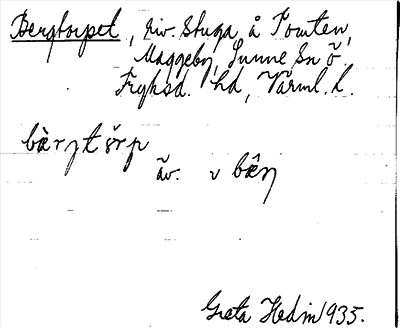 Bergtorpet, riv. stuga å Tomten,
Maggeby, Sunne Sn Ö.
Fryksd. hd, Värml. l.
bàrjtǒrp
äv. v bêrj
Greta Hedin 1935.